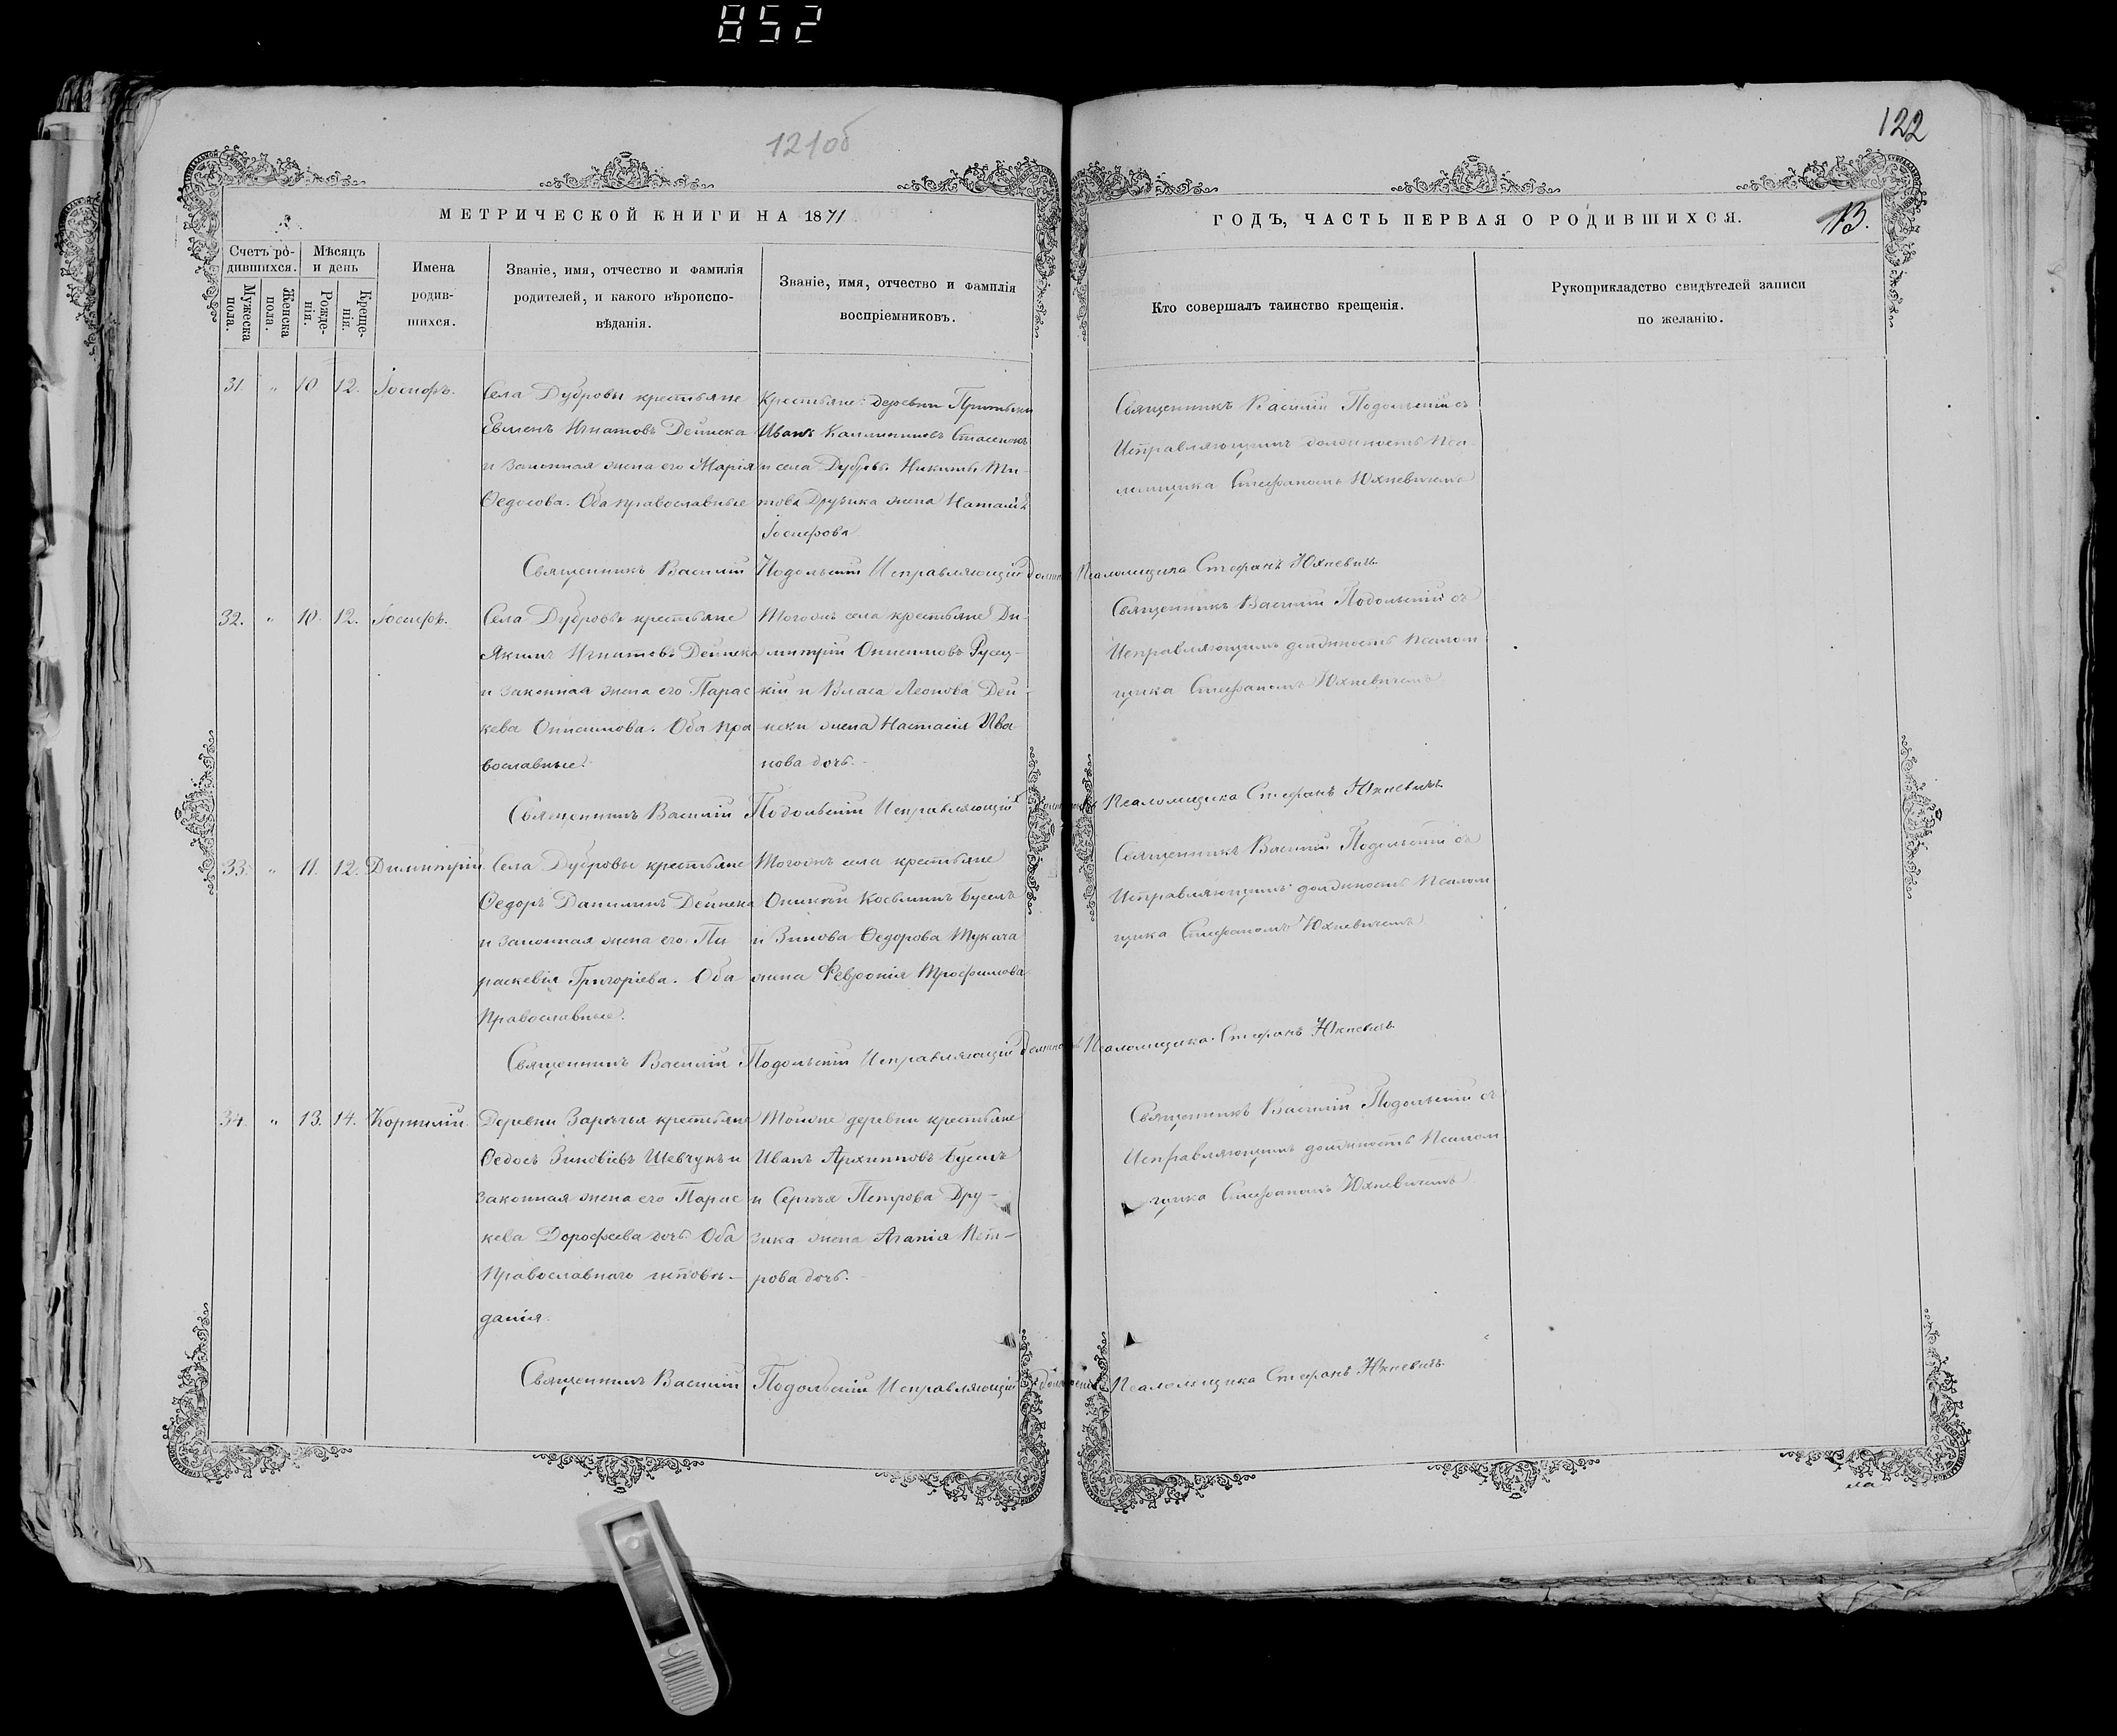 852
121об
122
МЕТРИЧЕСКОЙ КНИГИ НА 1871
ГОДЪ, ЧАСТЬ ПЕРВАЯ О РОДИВШИХСЯ.
13.
Счетъ ро-
дившихся.
Мѣсяцъ
и день
Мужеска
пола.
Женска
пола.
Рожде-
нія.
Креще-
нія.
Имена
родив-
шихся.
Званіе, имя, отчество и фамилія
родителей, и какого вѣроиспо-
вѣданія.
Званіе, имя, отчество и фамилія
воспріемниковъ.
Кто совершалъ таинство крещенія.
Рукоприкладство свидѣтелей записи
по желанію.
31. " 10 12. Іосифъ.
Села Дубровы крестьяне
Евменъ Игнатовъ Дейнека
и законная жена его Марія
Ѳедосова. Оба православные
Крестьяне: деревни
Иванъ Каллиниковъ
и села Дубровы Никиты Ти-
това Друзика жена Наталія
Іосифова
Священникъ Василій Подольскій съ
Исправляющимъ должность Пса-
ломщика Стефаномъ Юхневичемъ
Священникъ Василій Подольскій Исправляющій должность Псаломщика Стефанъ Юхневичъ.
32. " 10. 12. Іосифъ.
Села Дубровы крестьяне
Якимъ Игнатовъ Дейнека
и законная жена его Парас
кева Онисимова. Оба пра
вославные.
Тогожъ села крестьяне Ди-
митрій Онисимовъ Русец-
кій и Власа Леонова Дей-
неки жена Настасія Ива
нова дочь.
Священникъ Василій Подольскій съ
Исправляющимъ должность Псалом
щика Стефаномъ Юхневичемъ
Священникъ Василій Подольскій Исправляющій должность Псаломщика Стефанъ Юхневичъ.
33. " 11. 12. Димитрій.
Села Дубровы крестьяне
Ѳедоръ Данилинъ Дейнека
и законная жена его Па
раскевія Григоріева. Оба
Православные.
Тогожъ села крестьяне
Косьминъ Буселъ
и Зинова Ѳедорова Тукача
жена Феѵронія Трофимова
Священникъ Василій Подольскій съ
Исправляющимъ должность Псалом
щика Стефаномъ Юхневичемъ
Священникъ Василій Подольскій Исправляющій должность Псаломщика Стефанъ Юхневичъ.
34. " 13. 14. Корнилій.
Деревни Зарѣчья крестьяне
Ѳедосъ Зиновіевъ Шевчукъ и
законная жена его Парас
кева Дорофеева дочь. Оба
Православнаго исповѣ-
данія.
Тойже деревни крестьяне
Иванъ Архиповъ Буселъ
и Сергѣя Петрова Дру-
зика жена Агапія Пет-
рова дочь.
Священникъ Василій Подольскій съ
Исправляющимъ должность Псалом
щика Стефаномъ Юхневичемъ
Священникъ Василій Подольскій Исправляющій должность Псаломщика Стефанъ Юхневичъ.
ла